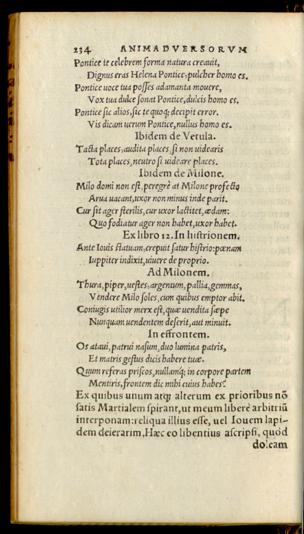 234 ANIMADVERSORVM
Pontice te celebrem forma natura creauit,
Dignus eras Helena Pontice, pulcher homo es.
Pontice uoce tua posses adamanta mouere,
Vox tua dulce sonat Pontice, dulcis homo es.
Pontice sic alios, sic te quoq; decipit error.
Vis dicam uerum Pontice, nullus homo es.
Ibidem de Vetula.
Tacta places, audita places, si non uidearis
Tota places, neutro si uideare places.
Ibidem de Milone.
Milo domi non est, peregrè at Milone profecto
Arua uacant, uxor non minus inde parit.
Cur sit ager sterilis, cur uxor lactitet, ædam:
Quo fodiatur ager non habet, uxor habet.
Ex libro 12. In histrionem.
Ante Iouis statuam, crepuit satur histrio: pœnam
Iuppiter indixit, uiuere de proprio.
Ad Milonem.
Thura, piper, uestes, argentum, pallia, gemmas,
Vendere Milo soles, cum quibus emptor abit.
Coniugis utilior merx est, quæ uendita sæpe
Nunquam uendentem deserit, aut minuit.
In effrontem.
Os ataui, patrui nasum, duo lumina patris,
Et matris gestus dicis habere tuæ.
Quum referas priscos, nullamq; in corpore partem
Mentiris, frontem dic mihi cuius habes?
Ex quibus unum atq; alterum ex prioribus nõ
satis Martialem spirant, ut meum liberè arbitriũ
interponam: reliqua illius esse, uel Iouem lapi-
dem deierarim, Hæc eo libentius ascripsi, quòd
doleam